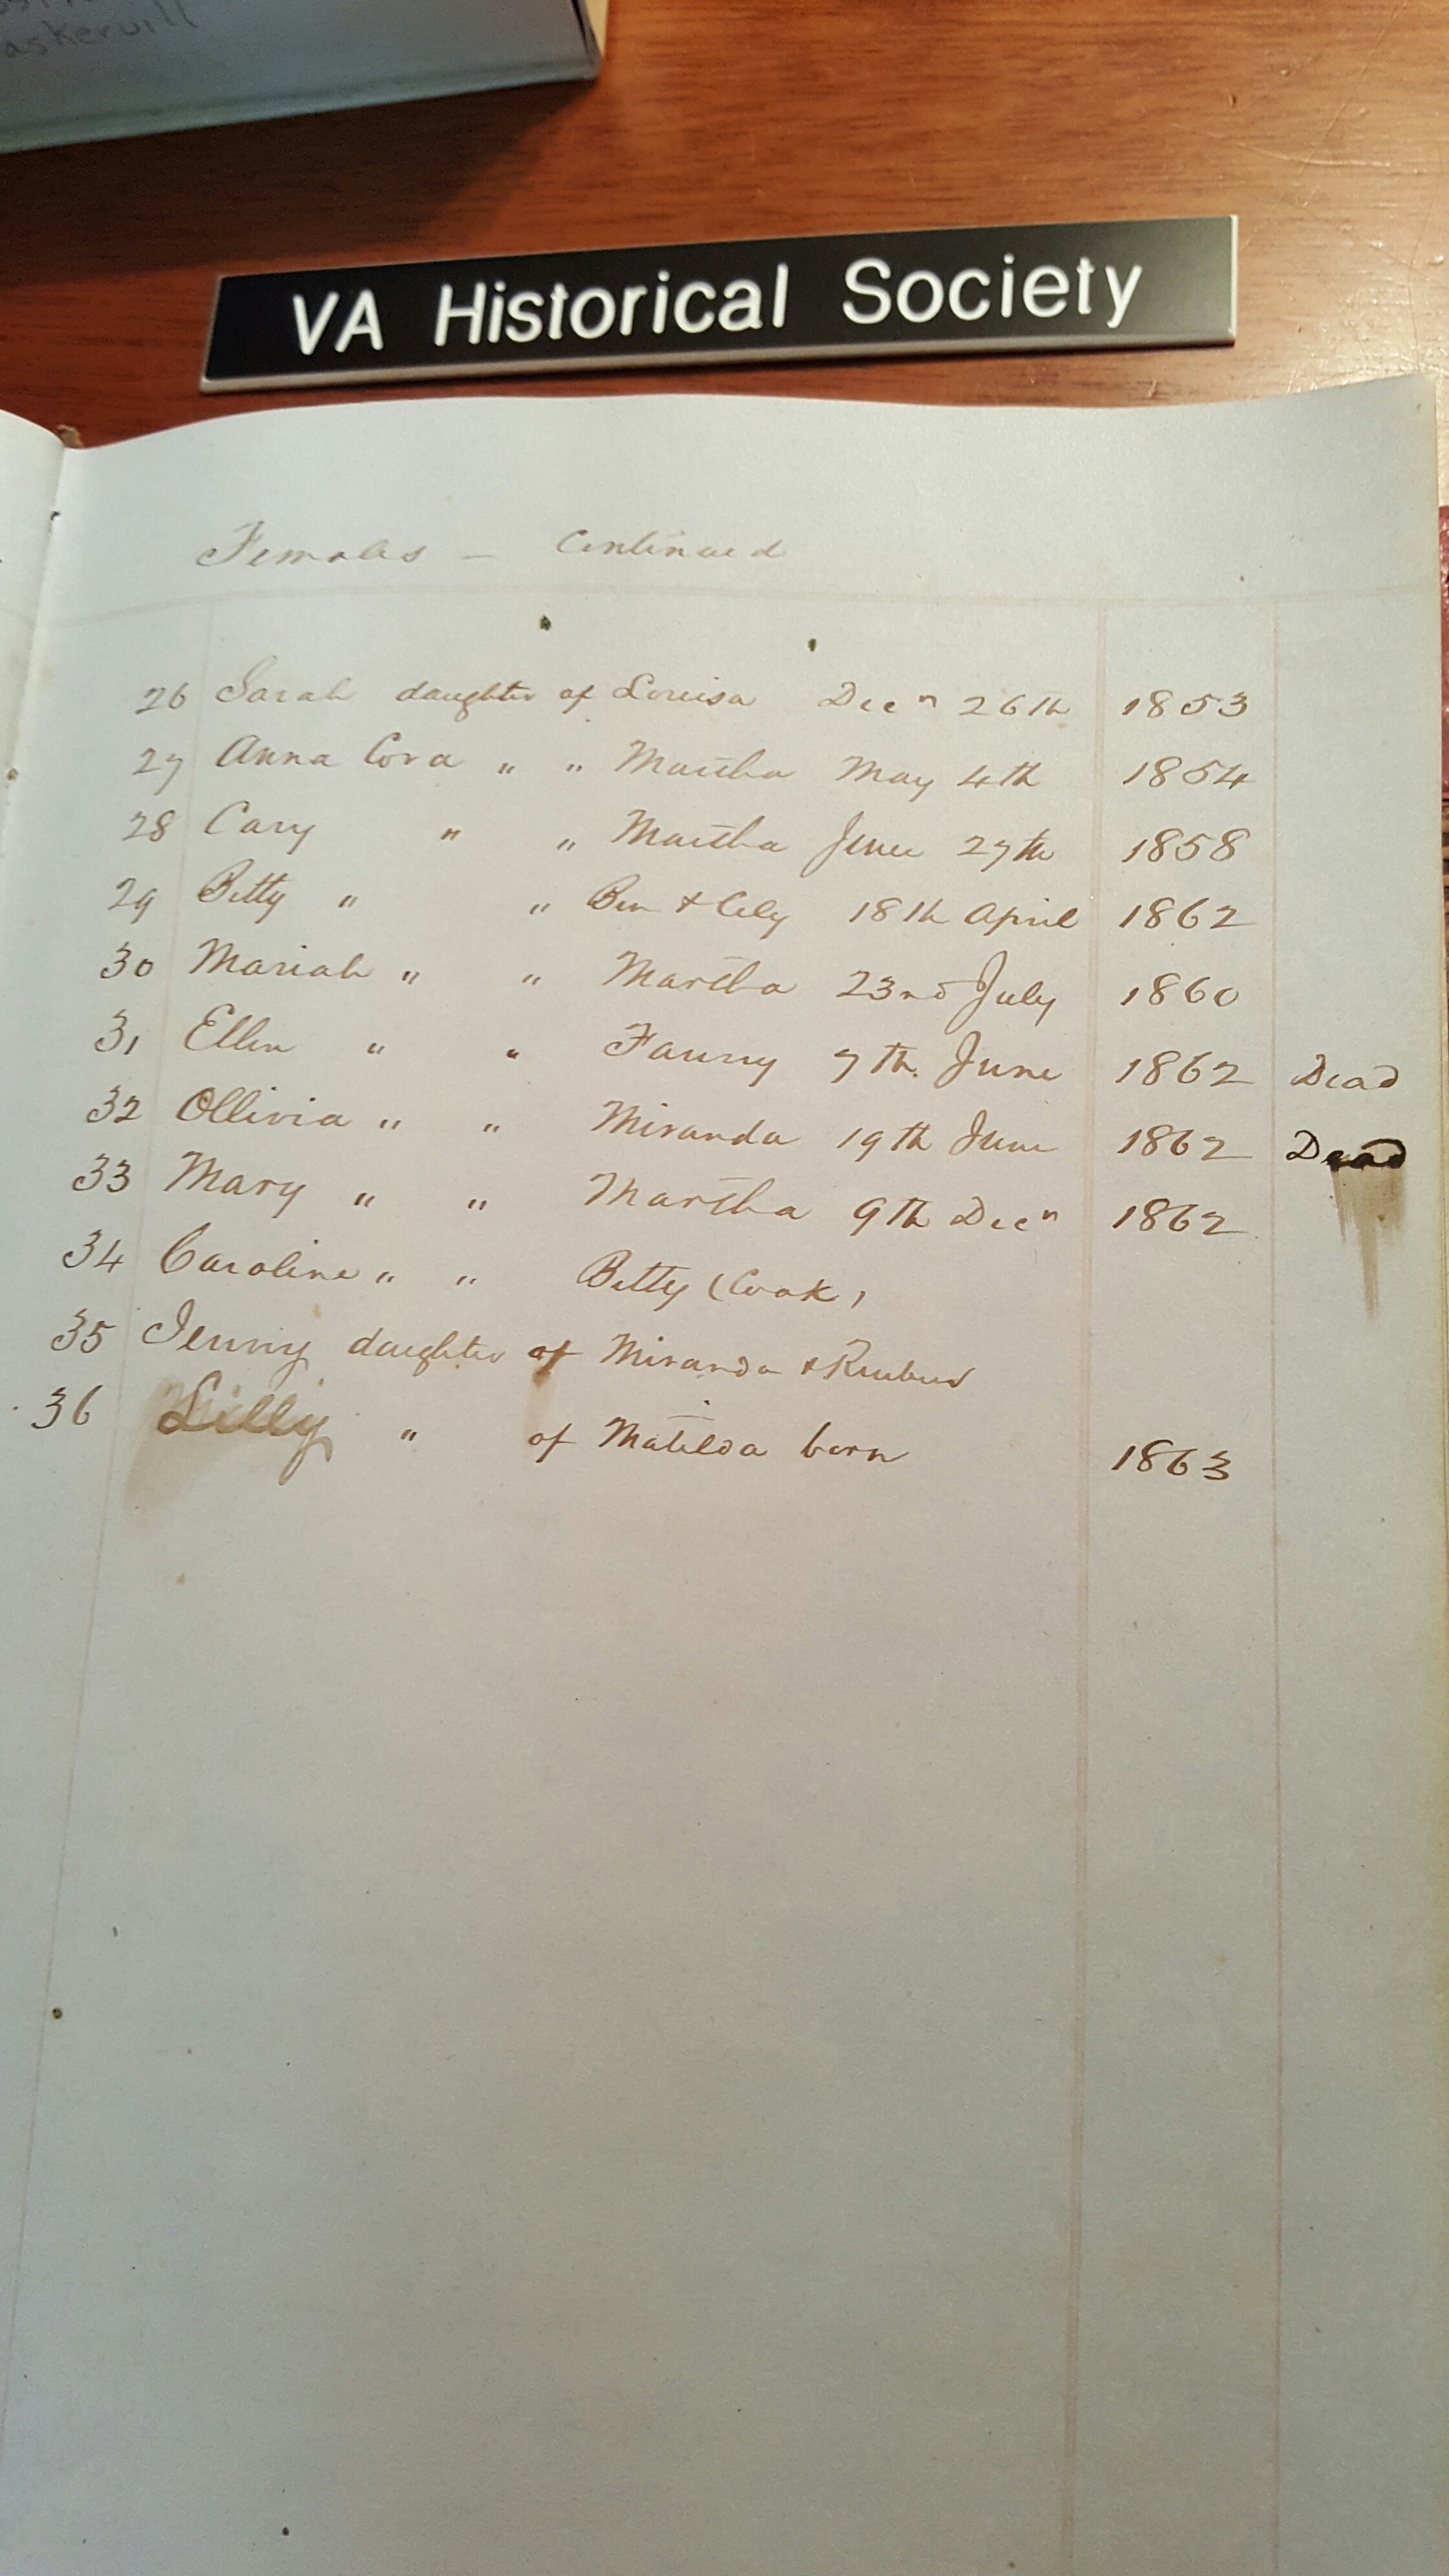 askervill
VA Historical Society
Females — Continued
26 Sarah daughter of Louisa Decr 26th 1853
27 Anna Cora " " Martha May 4th 1854
28 Cary " " Martha June 27th 1858
29 Betty " " Ben & Cely 18th April 1862
30 Mariah " " Martha 23rd July 1860
31 Ellen " " Fanny 7th. June 1862 Dead
32 Ollivia " " Miranda 19th June 1862 Dead
33 Mary " " Martha 9th Decr 1862
34 Caroline " " Betty (Cook)
35 Jenny daughter of Miranda & Reuben
36 Lilly " of Matilda born 1863